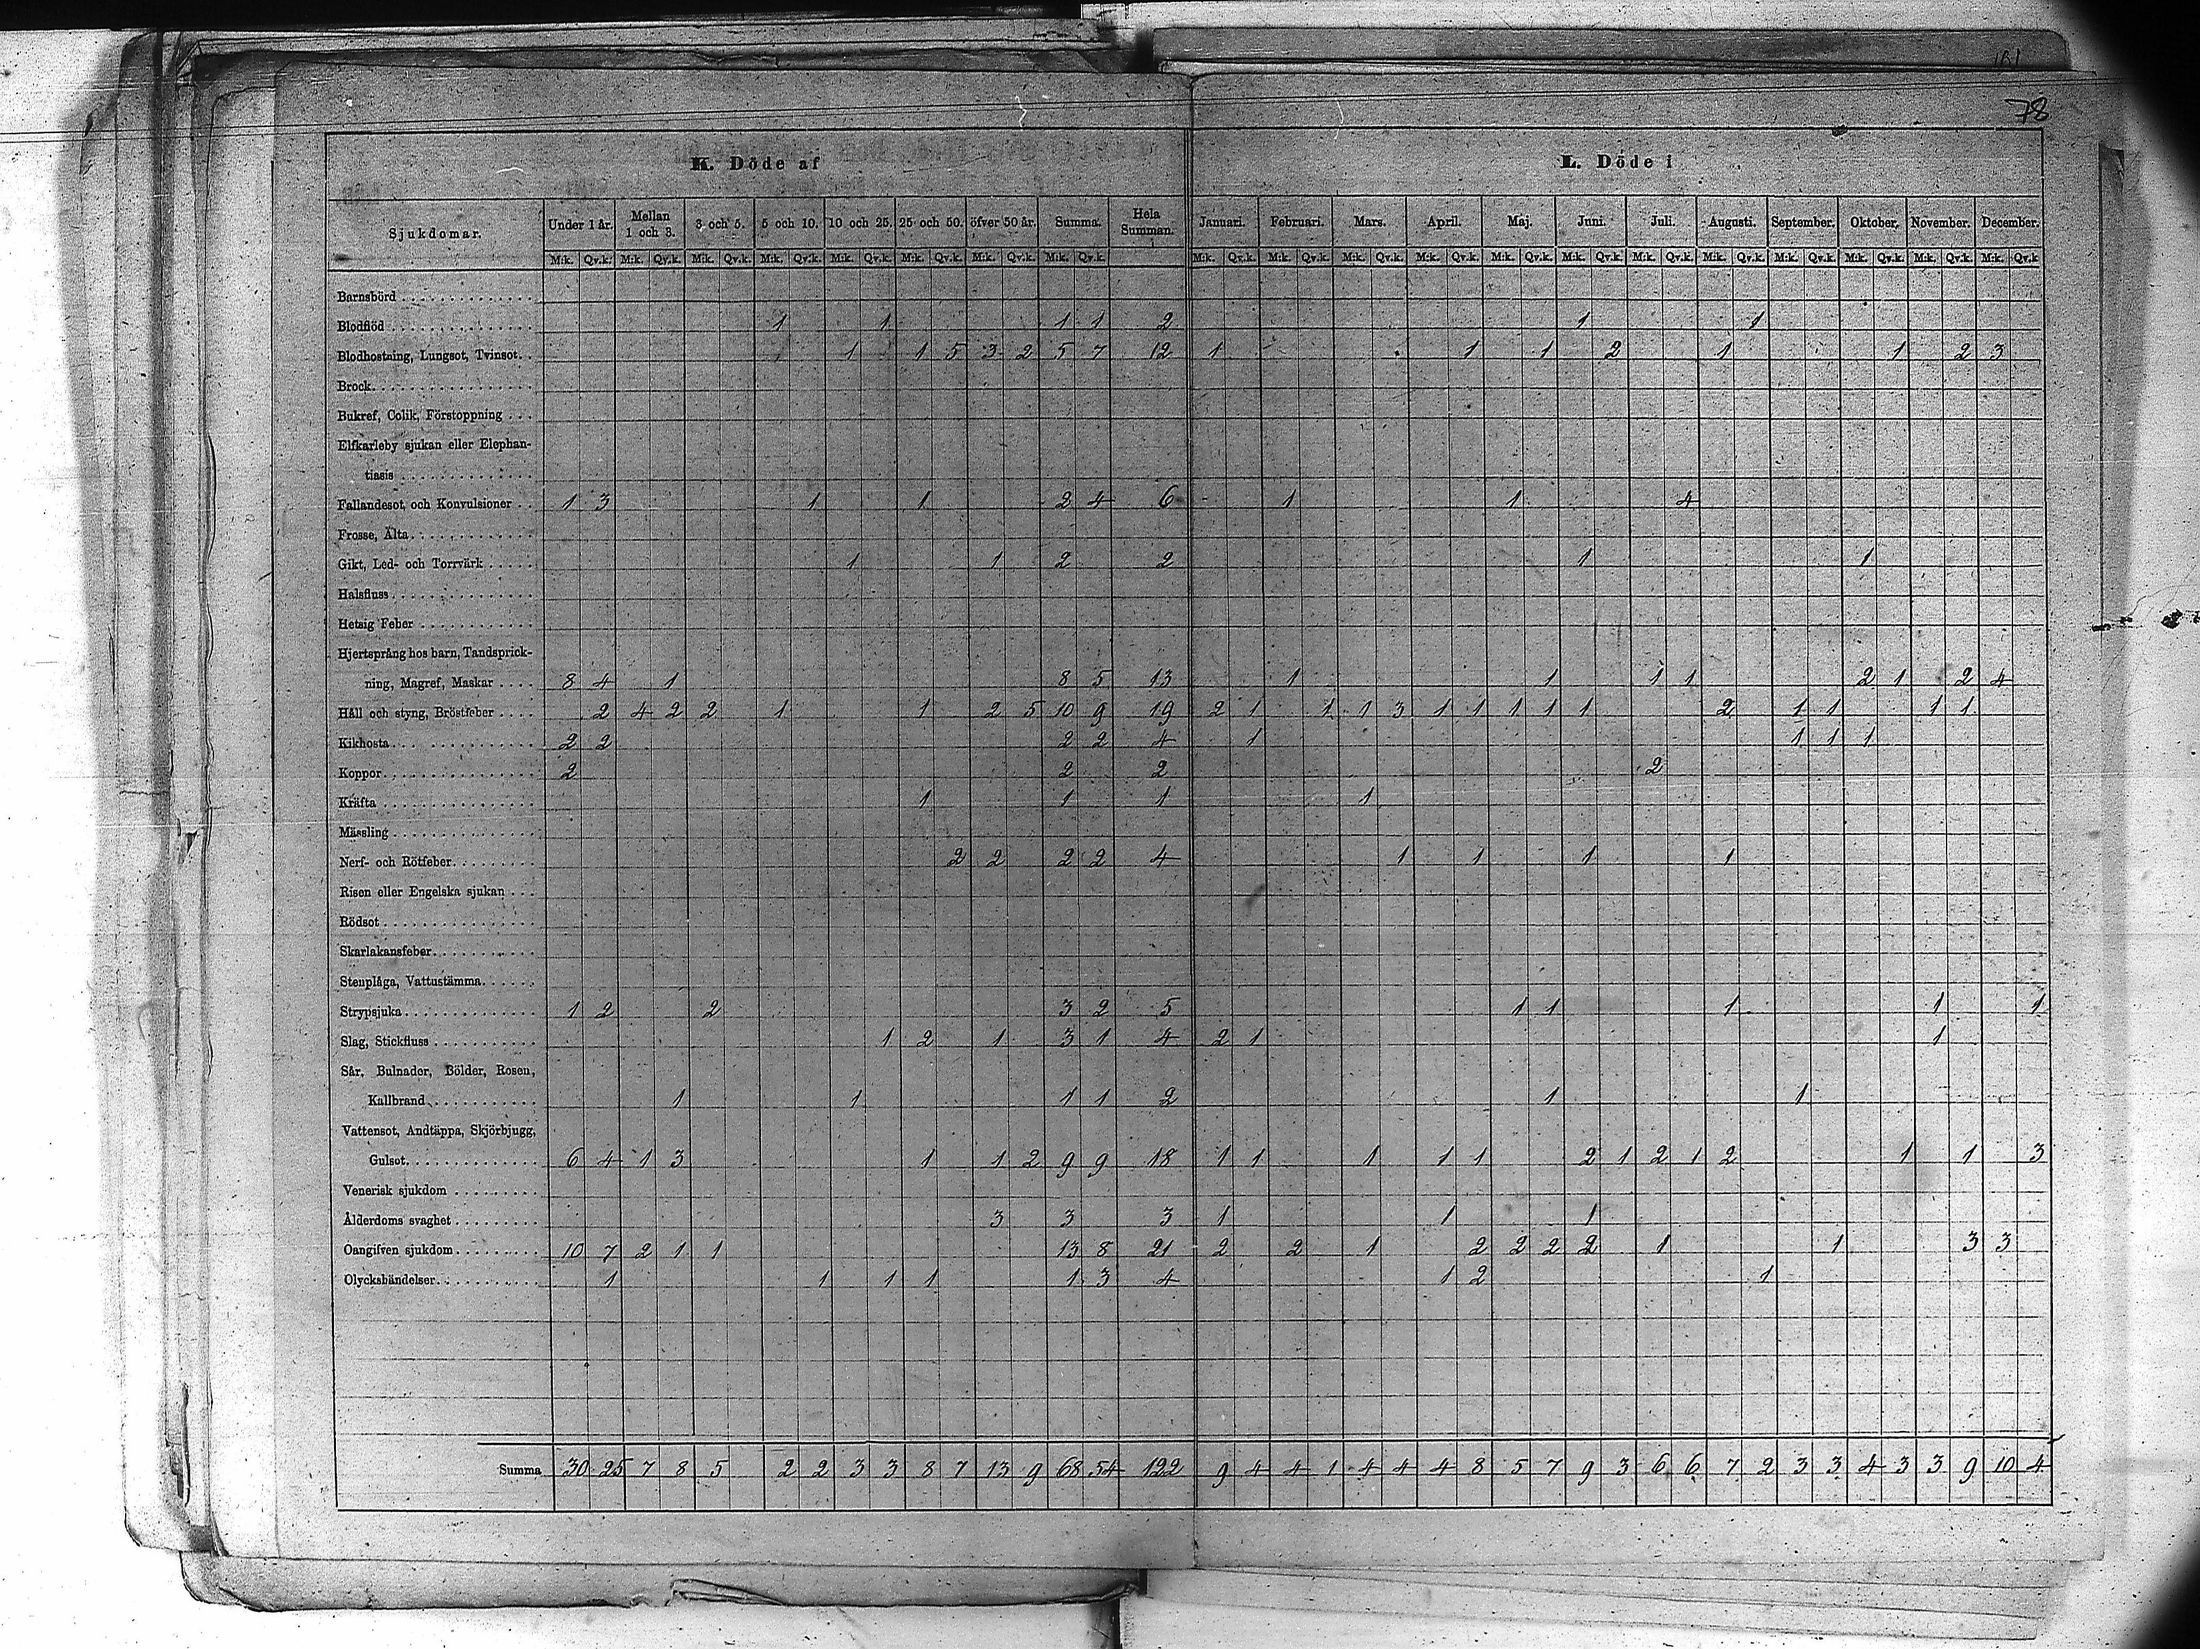 101
78
K. Döde af L. Döde i
Sjukdomar. Under 1 år. Mellan 1 och 3. 3 och 5. 5 och 10. 10 och 25. 25 och 50. öfver 50 år. Summa. Hela Summan. Januari. Februari. Mars. April. Maj. Juni. Juli. Augusti. September. Oktober. November. December.
M:k. Qv.k. M:k. Qv.k. M:k. Qv.k. M:k. Qv.k. M:k. Qv.k. M:k. Qv.k. M:k. Qv.k. M:k. Qv.k. M:k. Qv.k. M:k. Qv.k. M:k. Qv.k. M:k. Qv.k. M:k. Qv.k. M:k. Qv.k. M:k. Qv.k. M:k. Qv.k. M:k. Qv.k. M:k. Qv.k. M:k. Qv.k. M:k. Qv.k
Barnsbörd
Blodflöd 1 1 1 1 2 1 1
Blodhostning, Lungsot, Tvinsot 1 1 5 3 2 5 7 12 1 1 1 2 1 1 2 3
Brock
Bukref, Colik, Förstoppning
Elfkarleby sjukan eller Elephan-
tiasis
Fallandesot, och Konvulsioner 1 3 1 1 2 4 6 1 1 4
Frosse, Älta
Gikt, Led- och Torrvärk 1 1 2 2 1 1
Halsfluss
Hetsig Feber
Hjertsprång hos barn, Tandsprick-
ning, Magref, Maskar 8 4 1 8 5 13 1 1 1 1 2 1 2 4
Håll och styng, Bröstfeber 2 4 2 2 1 1 2 5 10 9 19 2 1 1 1 3 1 1 1 1 1 2 1 1 1 1
Kikhosta 2 2 2 2 4 1 1 1 1
Koppor 2 2 2 2
Kräfta 1 1 1 1
Mässling
Nerf- och Rötfeber 2 2 2 2 4 1 1 1 1
Risen eller Engelska sjukan
Rödsot
Skarlakansfeber
Stenplåga, Vattustämma
Strypsjuka 1 2 2 3 2 5 1 1 1 1 1
Slag, Stickfluss 1 2 1 3 1 4 2 1 1
Sår, Bulnader, Bölder, Rosen,
Kallbrand 1 1 1 1 2 1 1
Vattensot, Andtäppa, Skjörbjugg,
Gulsot 6 4 1 3 1 1 2 9 9 18 1 1 1 1 1 2 1 2 1 2 1 1 3
Venerisk sjukdom
Ålderdoms svaghet 3 3 3 1 1 1
Oangifven sjukdom 10 7 2 1 1 13 8 21 2 2 1 2 2 2 2 1 1 3 3
Olyckshändelser 1 1 1 1 1 3 4 1 2 1
Summa 30 25 7 8 5 2 2 3 3 8 7 13 9 68 54 122 9 4 4 1 4 4 4 8 5 7 9 3 6 6 7 2 3 3 4 3 3 9 10 4